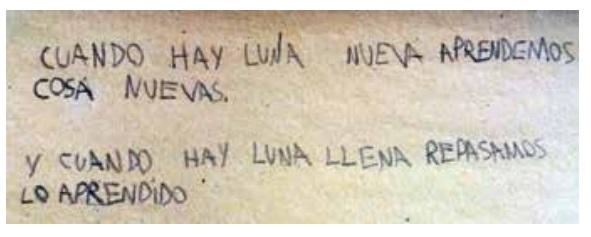 CUANDO HAY LUNA NUEVA APRENDEMOS
COSA NUEVAS.
Y CUANDO HAY LUNA LLENA REPASAMOS
LO APRENDIDO